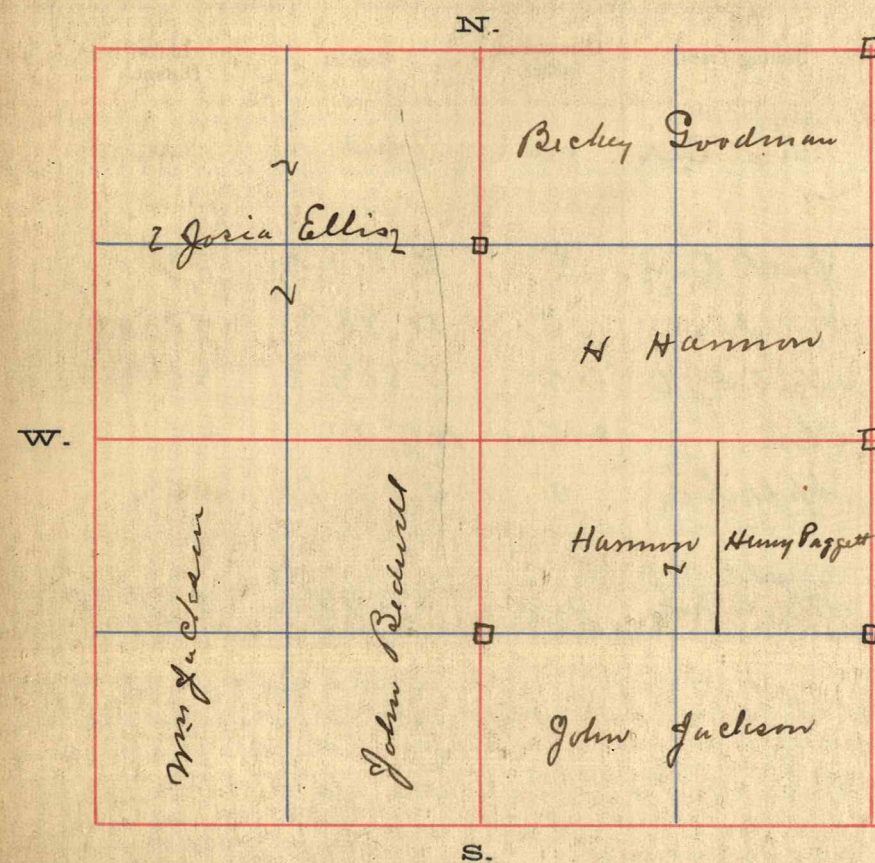 N.
Beckey Goodman
Josia Ellis
H Hannon
W.
Hannon
Henry Paggett
Wm Jackson
John Bedwell
John Jackson
S.